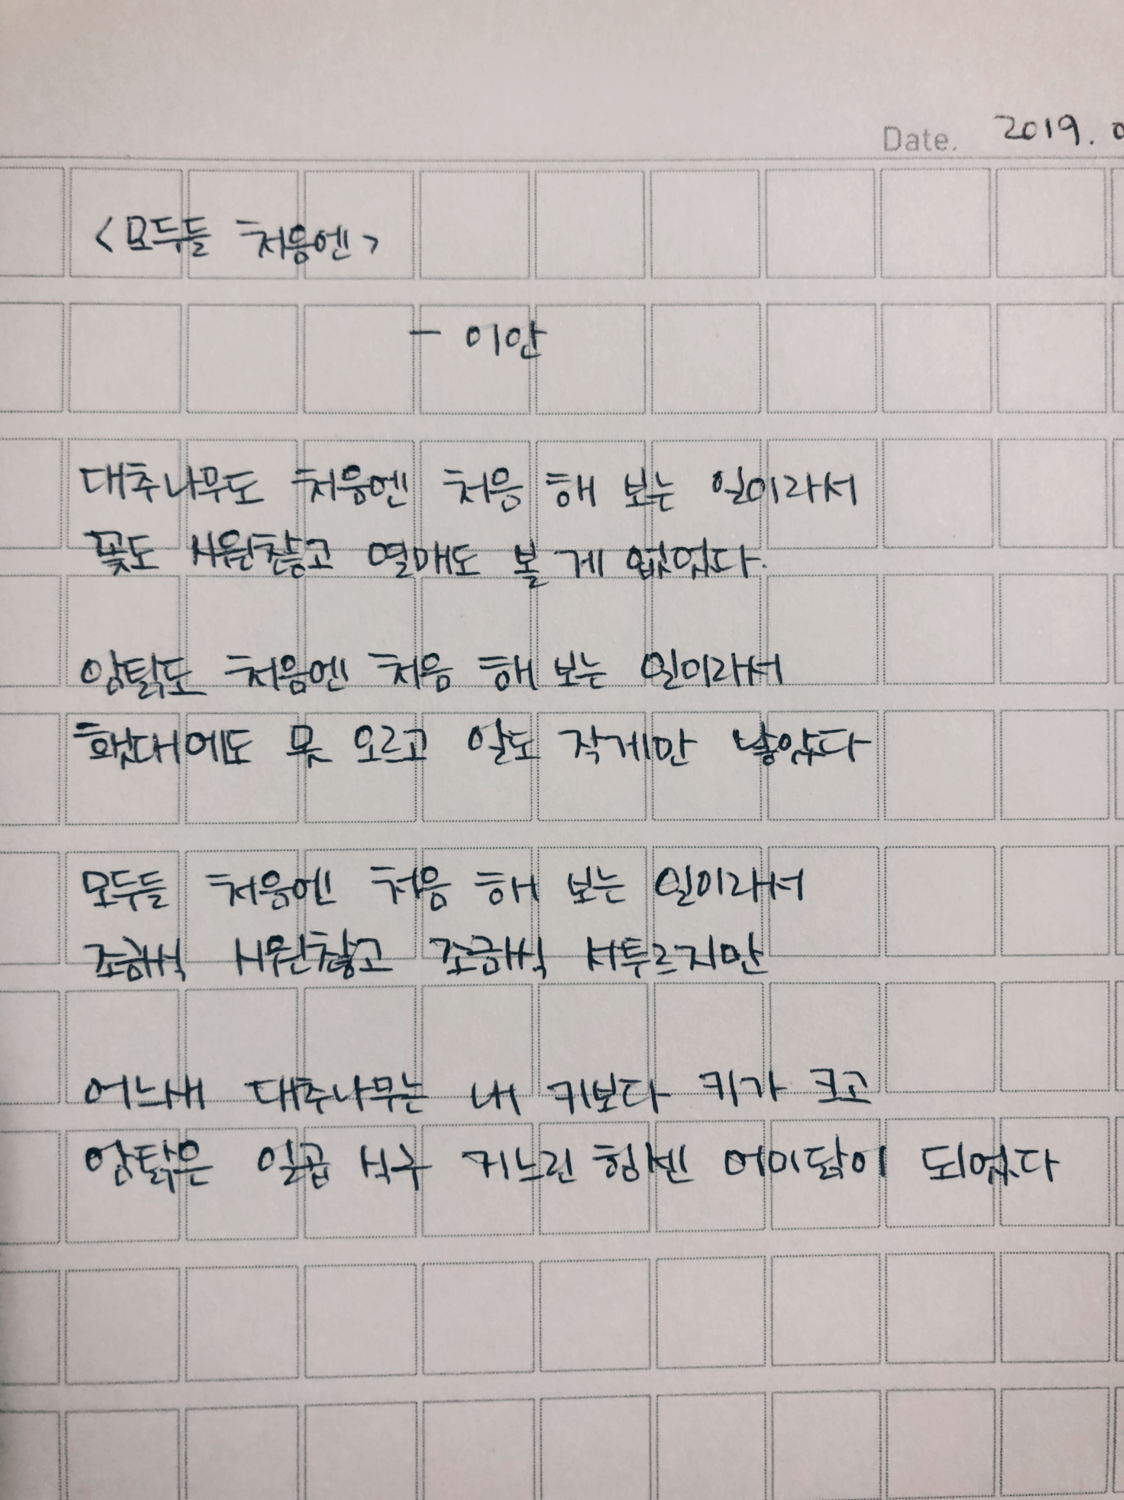 Date. 2019.
<모두들 처음엔>
- 이안
대추나무도 처음엔 처음 해 보는 일이라서
꽃도 시원찮고 열매도 볼 게 없었다.
암탉도 처음엔 처음 해 보는 일이라서
횃대에도 못 오르고 알도 작게만 낳았다
모두들 처음엔 처음 해 보는 일이라서
조금씩 시원찮고 조금씩 서투르지만
어느새 대추나무는 내 키보다 키가 크고
암탉은 일곱 식구 거느린 힘센 어미닭이 되었다